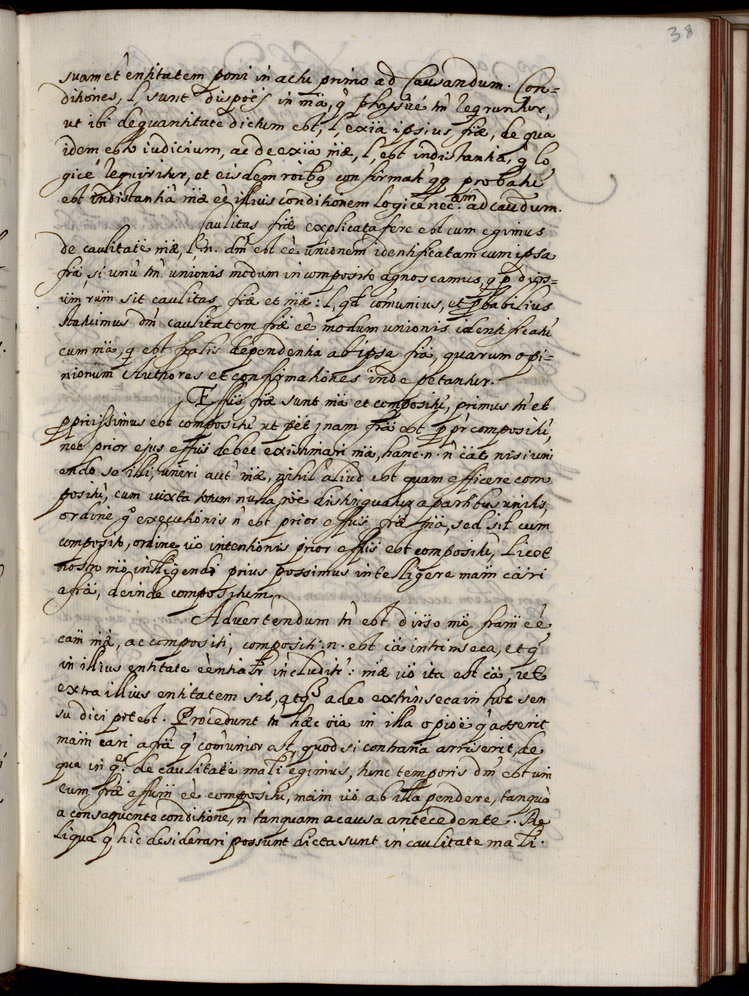 38
suam et entitatem poni in actu primo ad Causandum. Con-
ditiones, l, sunt dispões in mã, q̃ physice tñ req̃runtur,
ut ibi de quantitate dictum est, l, exĩa ipsius fræ, de qua
idem esto iudicium, ac de exĩa mæ, l, est indistantia, q̃ lo
gice requiritur, et eisdem roĩbꝫ confirmatr̃ qq̃ probatũ
est indistantiã mæ ẽe illius conditionem logice nec.am ad caũdum.
Caũlitas fræ explicata fere est cum egimus
de caũlitate mæ, l, n. dm̃ est ẽe unionem identificatam cum ipsa
frã si unũ tm̃ unionis modum in composito agnoscamus,
sit caũlitas fræ et mæ: l, qd̃ comunius, ut p̃babilius
statuimus dm̃ caũlitatem fræ ẽe modum unionis identificatũ
cum mã, q̃ est fr̃alis dependentia ab ipsa frã, quarum opi-
nionum Authores et confirmationes inde petantur.
Eff̃us fræ sunt mã et compositũ, primus tñ et
p̃priissimus est compositũ ut pẽt, nam frã est p̃ p̃r compositũ,
nec prior ejus eff̃us debet existimari mã, hanc. n. ñ cãt nisi uni
endo se illi, uniri aut̃ mæ, nihil aliud est quam efficere com
positũ, cum iuxta totum nulla rõe distinguatur a partibus unitis,
ordine g̊ executionis ñ est prior eff̃us fræ mã, sed sit cum
composito, ordine ũo intentionis prior eff̃us est compositũ, licet
nostro mõ intelligendi prius possimus intelligere mam̃ cãri
a frã, deinde compositum.
Advertendum tñ est dirso mõ, fram̃ ẽe
cam̃ mæ, ac compositi, compositi. n. est cã intrinseca, et q̃
in illius entitate ẽentiaĺr includitr̃: mæ ũo ita est cã, ut
extra illius entitatem sit, atq̃ adeo extrinseca in hoc sen
su dici põtest. Procedunt tñ hæc oĩa in illa opiõe q̃ asserit
mam̃ cãri a frã q̃ com̃unior est, quod si contraria arriserit, de
qua in q̃ de caũlitate mãli egimus, hunc temporis dm̃ est uni
cum fræ eff̃um ẽe compositũ, mam̃ ũo ab illa pendere, tanquã
a consequente conditione, ñ tanquam a causa antecedente. Re
liqua q̃ hic desiderari possunt dicta sunt in caũlitate mãli.